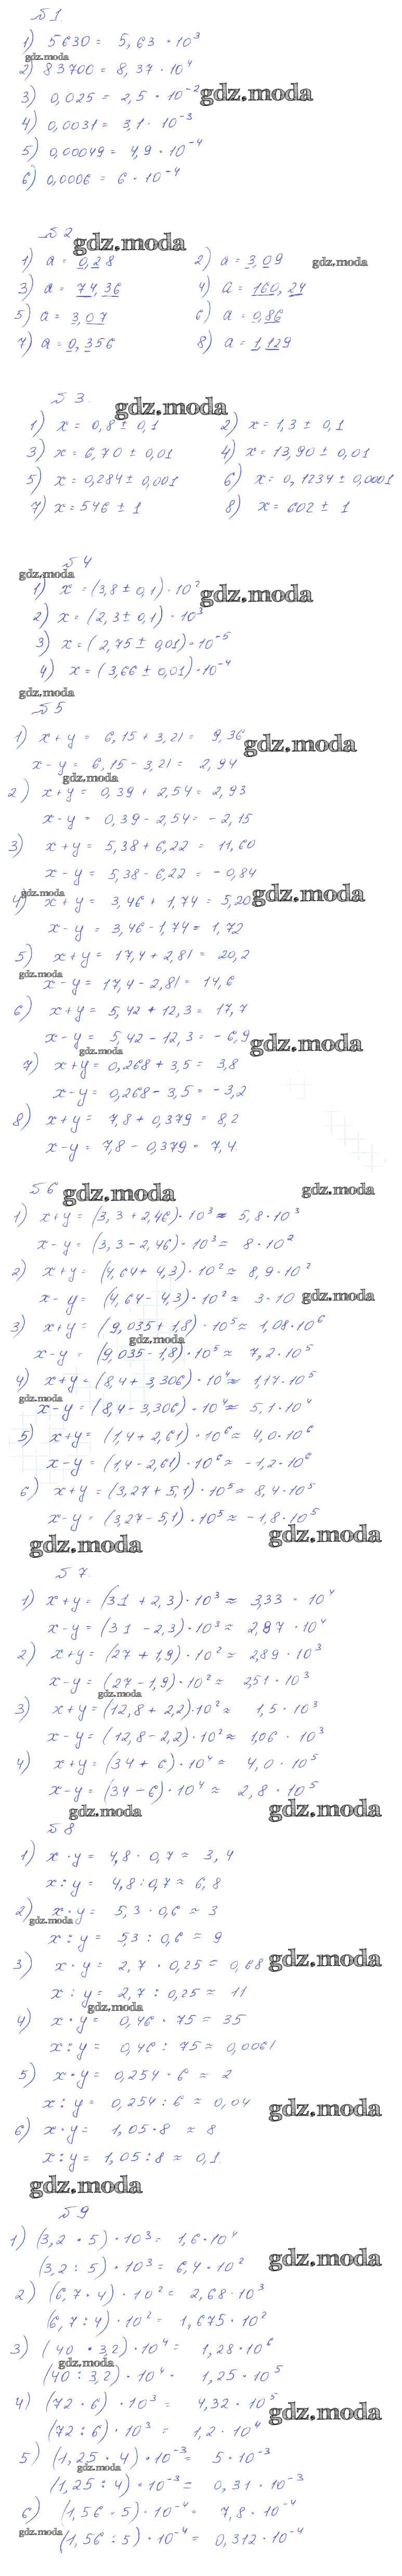 №1
1) 5630 = 5,63 · 10³
gdz.moda
2) 83700 = 8,37 · 10⁴
3) 0,025 = 2,5 · 10⁻² gdz.moda
4) 0,0031 = 3,1 · 10⁻³
5) 0,00049 = 4,9 · 10⁻⁴
6) 0,0006 = 6 · 10⁻⁴
№2 gdz.moda
1) a = 0,28 2) a = 3,09 gdz.moda
3) a = 74,36 4) a = 160,24
5) a = 3,07 6) a = 0,86
7) a = 0,356 8) a = 1,129
№3.
gdz.moda
1) x = 0,8 ± 0,1 2) x = 1,3 ± 0,1
3) x = 6,70 ± 0,01 4) x = 13,90 ± 0,01
5) x = 0,284 ± 0,001 6) x = 0,1234 ± 0,0001
7) x = 546 ± 1 8) x = 602 ± 1
№4
gdz.moda
1) x = (3,8 ± 0,1) · 10² gdz.moda
2) x = (2,3 ± 0,1) · 10³
3) x = (2,75 ± 0,01) · 10⁻⁵
4) x = (3,66 ± 0,01) · 10⁻⁴
gdz.moda
№5
1) x + y = 6,15 + 3,21 = 9,36
gdz.moda
x - y = 6,15 - 3,21 = 2,94
gdz.moda
2) x + y = 0,39 + 2,54 = 2,93
x - y = 0,39 - 2,54 = - 2,15
3) x + y = 5,38 + 6,22 = 11,60
x - y = 5,38 - 6,22 = - 0,84
gdz.moda
4) x + y = 3,46 + 1,74 = 5,20 gdz.moda
x - y = 3,46 - 1,74 = 1,72
5) x + y = 17,4 + 2,81 = 20,2
gdz.moda
x - y = 17,4 - 2,81 = 14,6
6) x + y = 5,42 + 12,3 = 17,7
x - y = 5,42 - 12,3 = - 6,9 gdz.moda
gdz.moda
7) x + y = 0,268 + 3,5 = 3,8
x - y = 0,268 - 3,5 = - 3,2
8) x + y = 7,8 + 0,379 = 8,2
x - y = 7,8 - 0,379 = 7,4.
№6 gdz.moda gdz.moda
1) x + y = (3,3 + 2,46) · 10³ ≈ 5,8 · 10³
x - y = (3,3 - 2,46) · 10³ ≈ 8 · 10²
2) x + y = (4,64 + 4,3) · 10² ≈ 8,9 · 10²
x - y = (4,64 - 4,3) · 10² ≈ 3 · 10 gdz.moda
3) x + y = (9,035 + 1,8) · 10⁵ ≈ 1,08 · 10⁶
gdz.moda
x - y = (9,035 - 1,8) · 10⁵ ≈ 7,2 · 10⁵
4) x + y = (8,4 + 3,306) · 10⁴ ≈ 1,17 · 10⁵
gdz.moda
x - y = (8,4 - 3,306) · 10⁴ ≈ 5,1 · 10⁴
5) x + y = (1,4 + 2,61) · 10⁶ ≈ 4,0 · 10⁶
x - y = (1,4 - 2,61) · 10⁶ ≈ - 1,2 · 10⁶
6) x + y = (3,27 + 5,1) · 10⁵ ≈ 8,4 · 10⁵
x - y = (3,27 - 5,1) · 10⁵ ≈ - 1,8 · 10⁵
gdz.moda gdz.moda
№7.
1) x + y = (31 + 2,3) · 10³ ≈ 3,33 · 10⁴
x - y = (31 - 2,3) · 10³ ≈ 2,87 · 10⁴
2) x + y = (27 + 1,9) · 10² ≈ 2,89 · 10³
x - y = (27 - 1,9) · 10² ≈ 2,51 · 10³
gdz.moda
3) x + y = (12,8 + 2,2) · 10² ≈ 1,5 · 10³
x - y = (12,8 - 2,2) · 10² ≈ 1,06 · 10³
4) x + y = (34 + 6) · 10⁴ ≈ 4,0 · 10⁵
x - y = (34 - 6) · 10⁴ ≈ 2,8 · 10⁵
gdz.moda gdz.moda
№8
1) x · y = 4,8 · 0,7 ≈ 3,4
x : y = 4,8 : 0,7 ≈ 6,8
2) x · y = 5,3 · 0,6 ≈ 3
gdz.moda
x : y = 5,3 : 0,6 ≈ 9
3) x · y = 2,7 · 0,25 = 0,68 gdz.moda
x : y = 2,7 : 0,25 ≈ 11
gdz.moda
4) x · y = 0,46 · 75 = 35
x : y = 0,46 : 75 ≈ 0,0061
5) x · y = 0,254 · 6 ≈ 2
x : y = 0,254 : 6 ≈ 0,04 gdz.moda
6) x · y = 1,05 · 8 ≈ 8
x : y = 1,05 : 8 ≈ 0,1
gdz.moda
№9
1) (3,2 · 5) · 10³ = 1,6 · 10⁴
(3,2 : 5) · 10³ = 6,4 · 10² gdz.moda
2) (6,7 · 4) · 10² = 2,68 · 10³
(6,7 : 4) · 10² = 1,675 · 10²
3) (40 · 3,2) · 10⁴ = 1,28 · 10⁶
gdz.moda
(40 : 3,2) · 10⁴ = 1,25 · 10⁵
4) (72 · 6) · 10³ = 4,32 · 10⁵
gdz.moda
(72 : 6) · 10³ = 1,2 · 10⁴
5) (1,25 · 4) · 10⁻³ = 5 · 10⁻³
gdz.moda
(1,25 : 4) · 10⁻³ = 0,31 · 10⁻³
6) (1,56 · 5) · 10⁻⁴ = 7,8 · 10⁻⁴
gdz.moda
(1,56 : 5) · 10⁻⁴ = 0,312 · 10⁻⁴